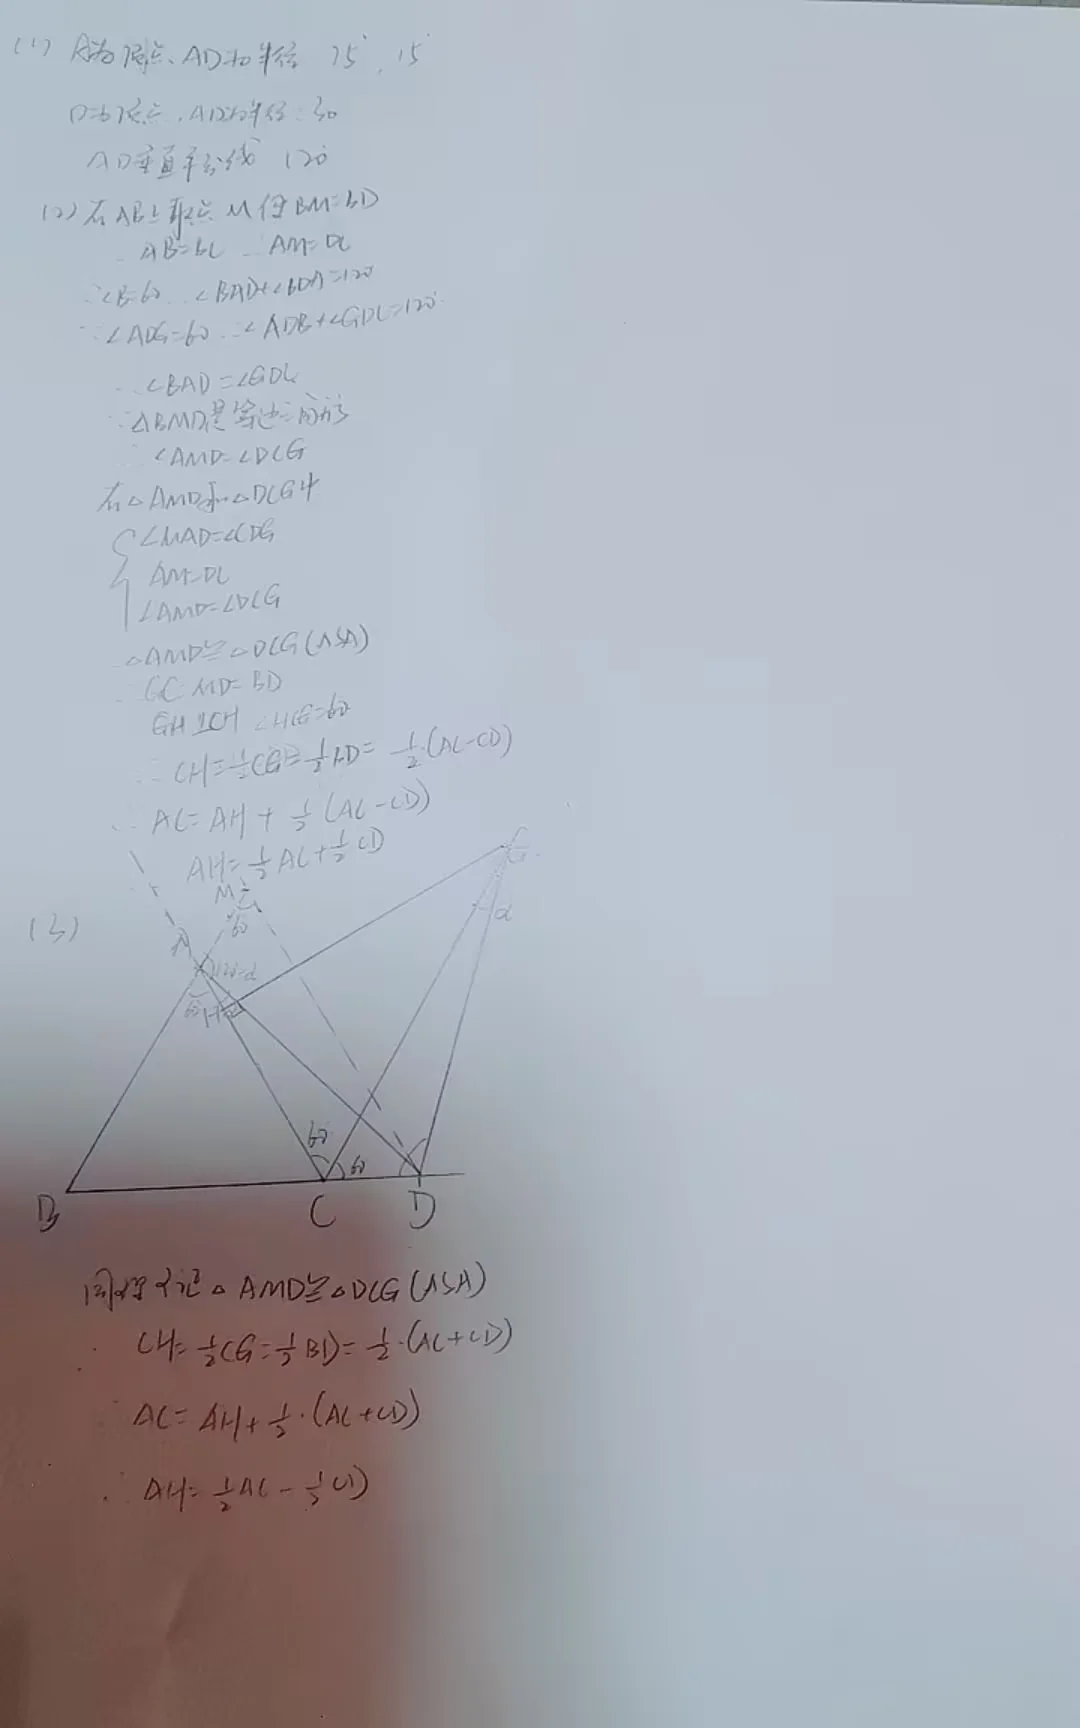 (1) A为顶点、AD为半径 75°、15°
D为顶点、AD为半径:30
AD垂直平分线 120°
(2) 在AB上取点M使BM=BD
∵AB=BC ∴AM=DC
∵∠B=60 ∴∠BAD+∠BDA=120
∵∠ADG=60 ∴∠ADB+∠GDC=120°
∴∠BAD=∠GDC
∵△BMD是等边三角形
∴∠AMD=∠DCG
在△AMD和△DCG中
∠MAD=∠CDG
AM=DC
∠AMD=∠DCG
△AMD≌△DCG(ASA)
∴GC MD=BD
GH⊥CH ∠HCG=60
∴CH=½CG=½BD=½·(AC-CD)
∴AC=AH+½(AC-CD)
AH=½AC+½CD
(3)
M
60
G
α
A
120-α
60
H
60
60
B
C
D
同理可证△AMD≌△DCG(ASA)
∴CH=½CG=½BD=½·(AC+CD)
∴AC=AH+½·(AC+CD)
∴AH=½AC-½CD